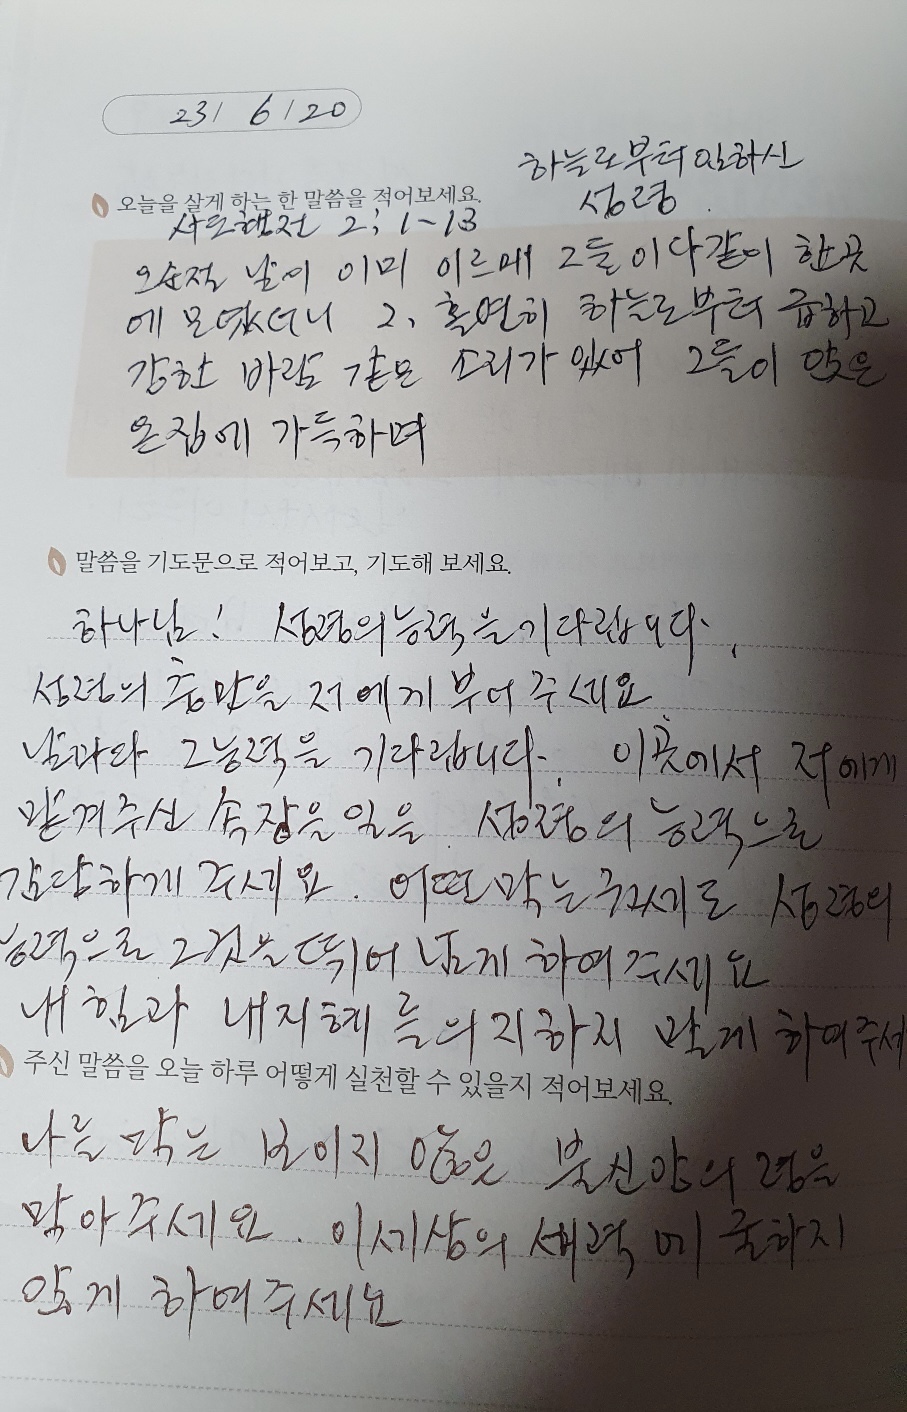 23/ 6/20
하늘로부터 임하신
성령.
오늘을 살게 하는 한 말씀을 적어보세요.
사도행전 2; 1~13
오순절 날이 이미 이르매 그들이 다같이 한곳
에 모였더니 2, 홀연히 하늘로부터 급하고
강한 바람 같은 소리가 있어 그들이 앉은
온집에 가득하며
말씀을 기도문으로 적어보고, 기도해 보세요.
하나님! 성령의 능력을 기다립니다.
성령의 충만을 저에게 부어 주세요
날마다 그 능력을 기다립니다. 이곳에서 저에게
맡겨주신 속장은일을 성령의 능력으로
감당하게 주세요. 어떤 막는 귀세도 성령의
능력으로 그것을 뛰어 넘게 하여주세요
내힘과 내지혜 를의지하지 말게 하여주세
주신 말씀을 오늘 하루 어떻게 실천할 수 있을지 적어보세요.
나를 막는 보이지 않은 불신앙의 령을
막아주세요. 이세상의 세력에 굴하지
않게 하여주세요